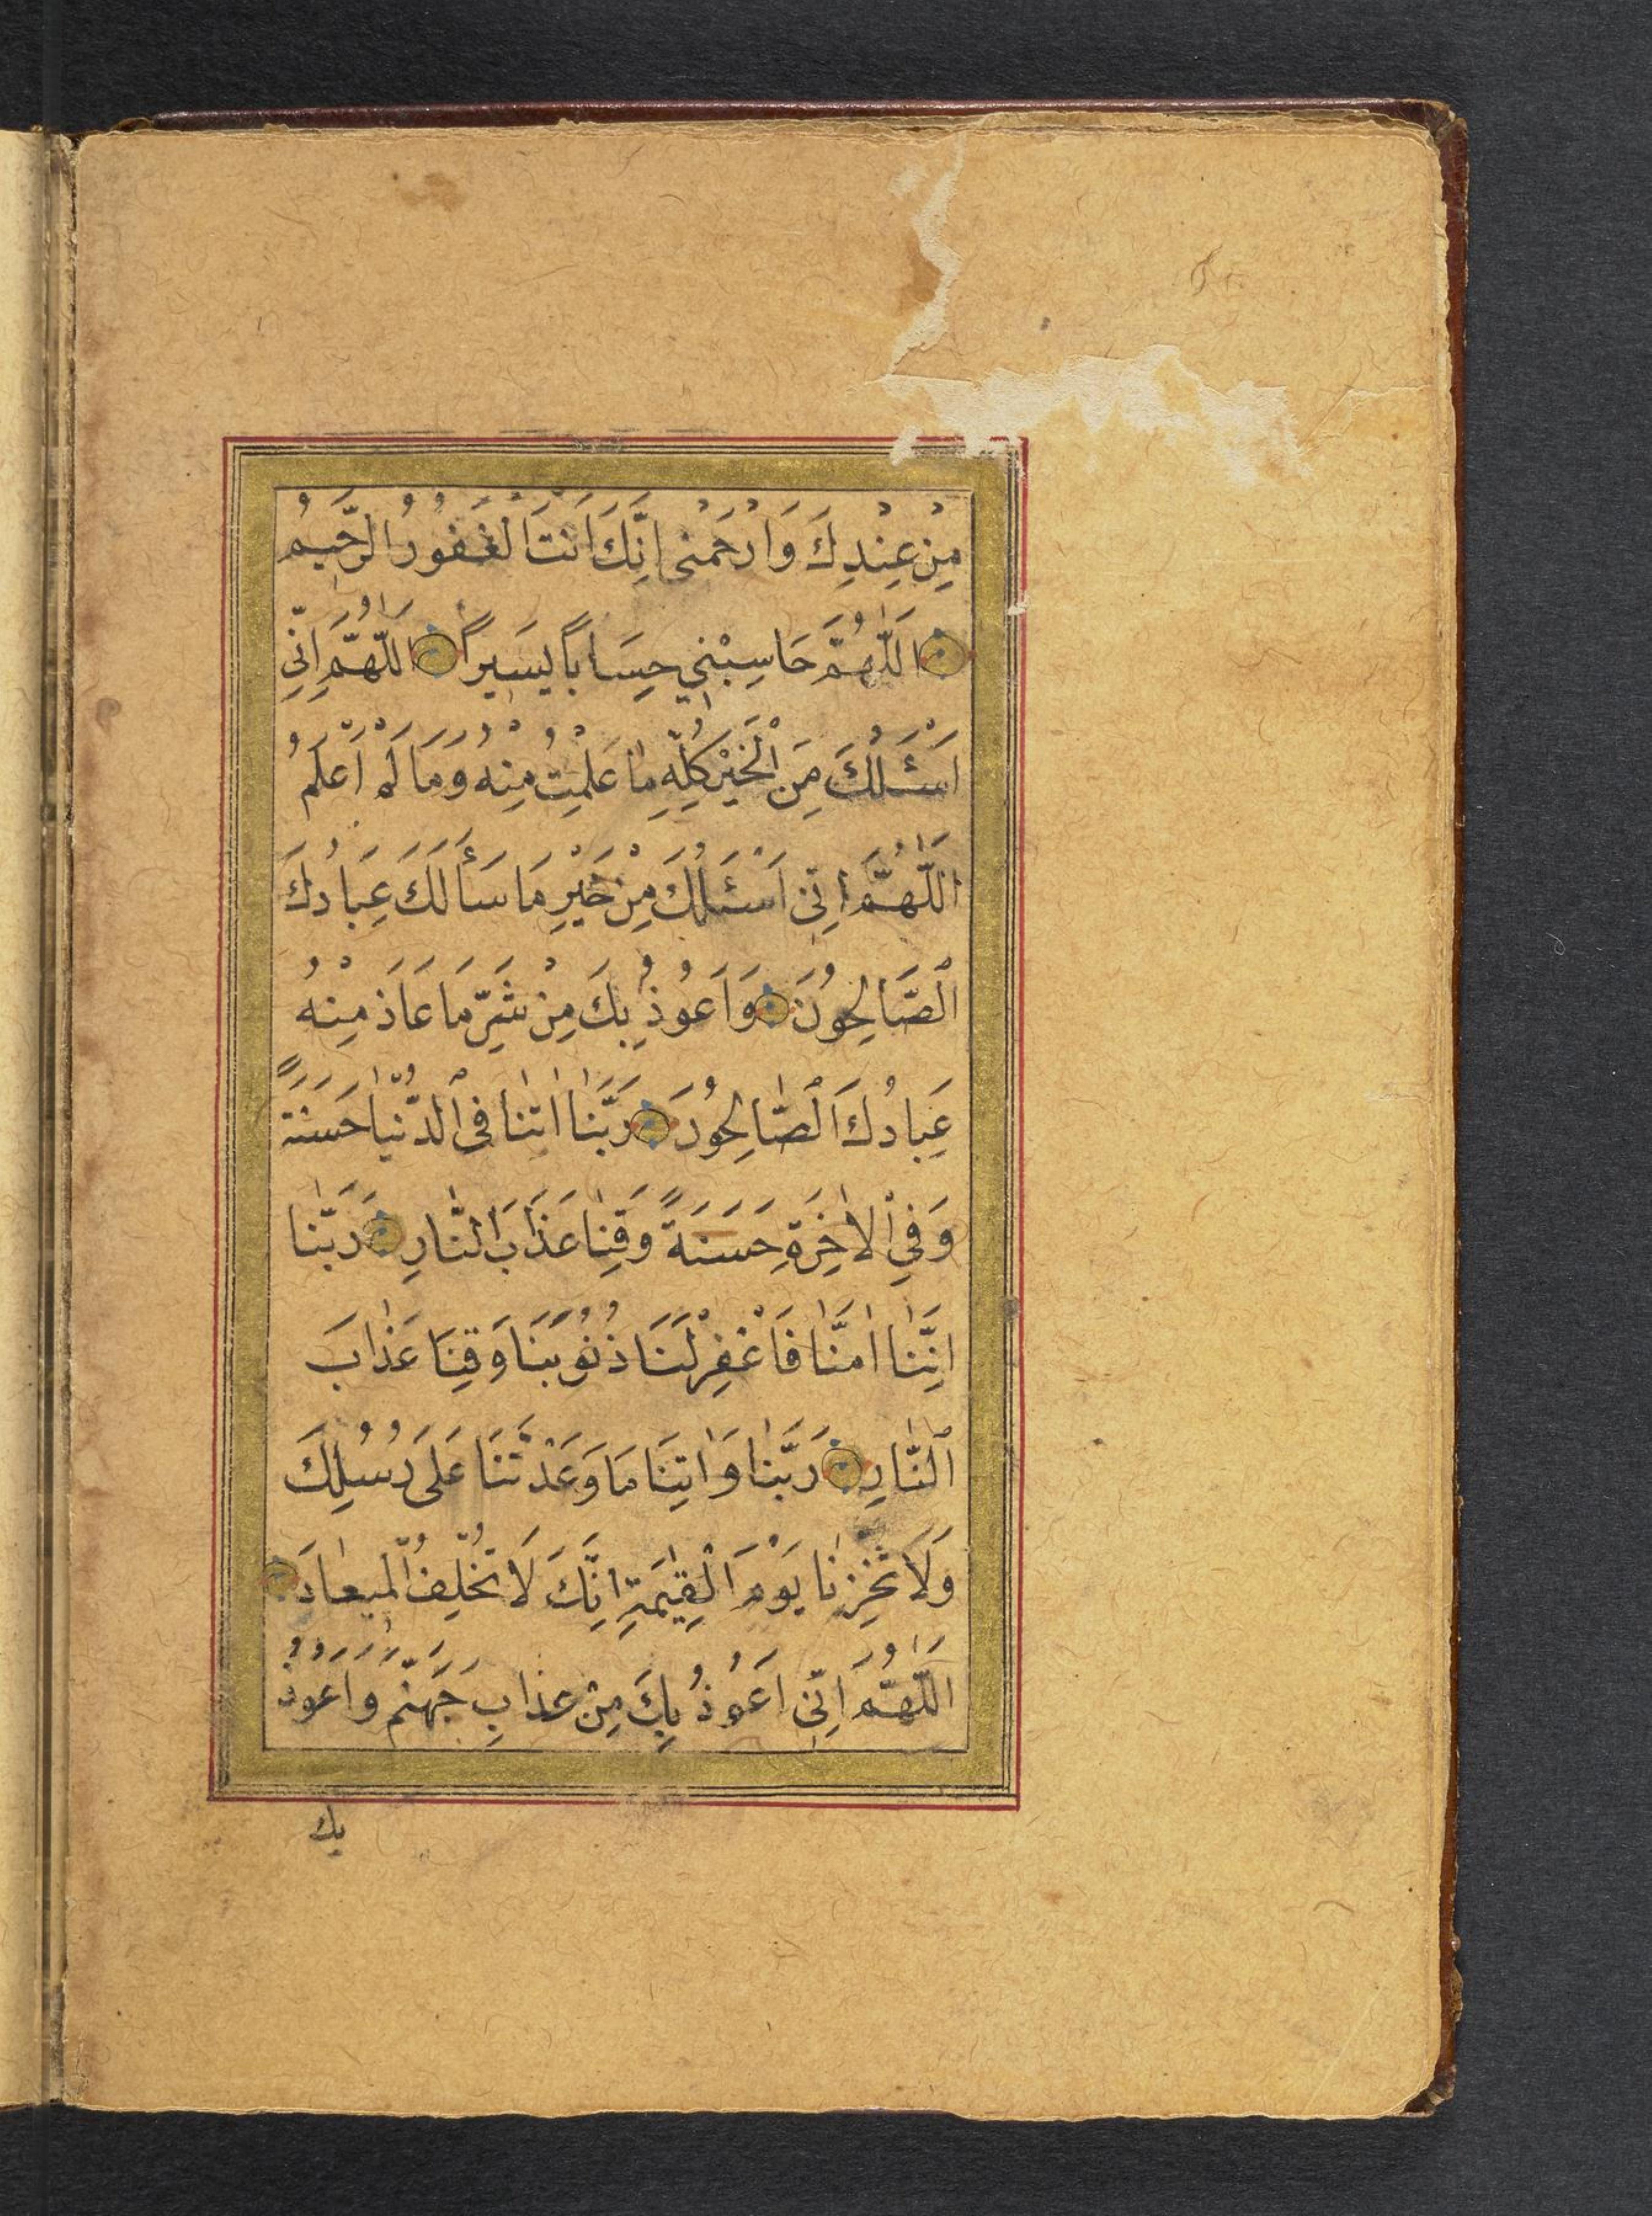 مِنْ عِنْدِكَ وَارْحَمْنى اِنَّكَ اَنْتَ الْغَفُورُ الرَّحيمُ
اَللّٰهُمَّ حَاسِبْنِي حِسَاباً يَسيراً اَللّٰهُمَّ اِنِّي
اَسْئَلُكَ مِنَ الْخَيْرِ كُلِّهِ مٰا عَلِمْتُ مِنْهُ وَمَا لَمْ اَعْلَمُ
اَللّٰهُمَّ اِنّى اَسْئَلُكَ مِنْ خَيْرِ مَا سَأَلَكَ عِبَادُكَ
الصَّالِحُونَ وَاَعُوذُ بِكَ مِنْ شَرِّ مَا عَاذَ مِنْهُ
عِبادُكَ الصّٰالِحُونَ رَبَّنٰا اٰتنٰا فى الدُّنْيٰا حَسَنَةً
وَفِي الْاٰخِرَةِ حَسَنَةً وَقِنٰا عَذَابَ النّٰارِ رَبَّنٰا
اِنَّنٰا اٰمَنّٰا فَاغْفِرْ لَنَا ذُنُوبَنَا وَقِنَا عَذٰابَ
النّٰارِ رَبَّنٰا وَاٰتِنَا مَا وَعَدْتَنَا عَلَى رُسُلِكَ
وَلَا تُخْزِنٰا يَوْمَ الْقِيٰمَةِ اِنَّكَ لَا تُخْلِفُ الْميعٰادَ
اَللّٰهُمَّ اِنّى اَعُوذُ بِكَ مِنْ عَذابِ جَهَنَّمَ وَاَعُوذُ
بك